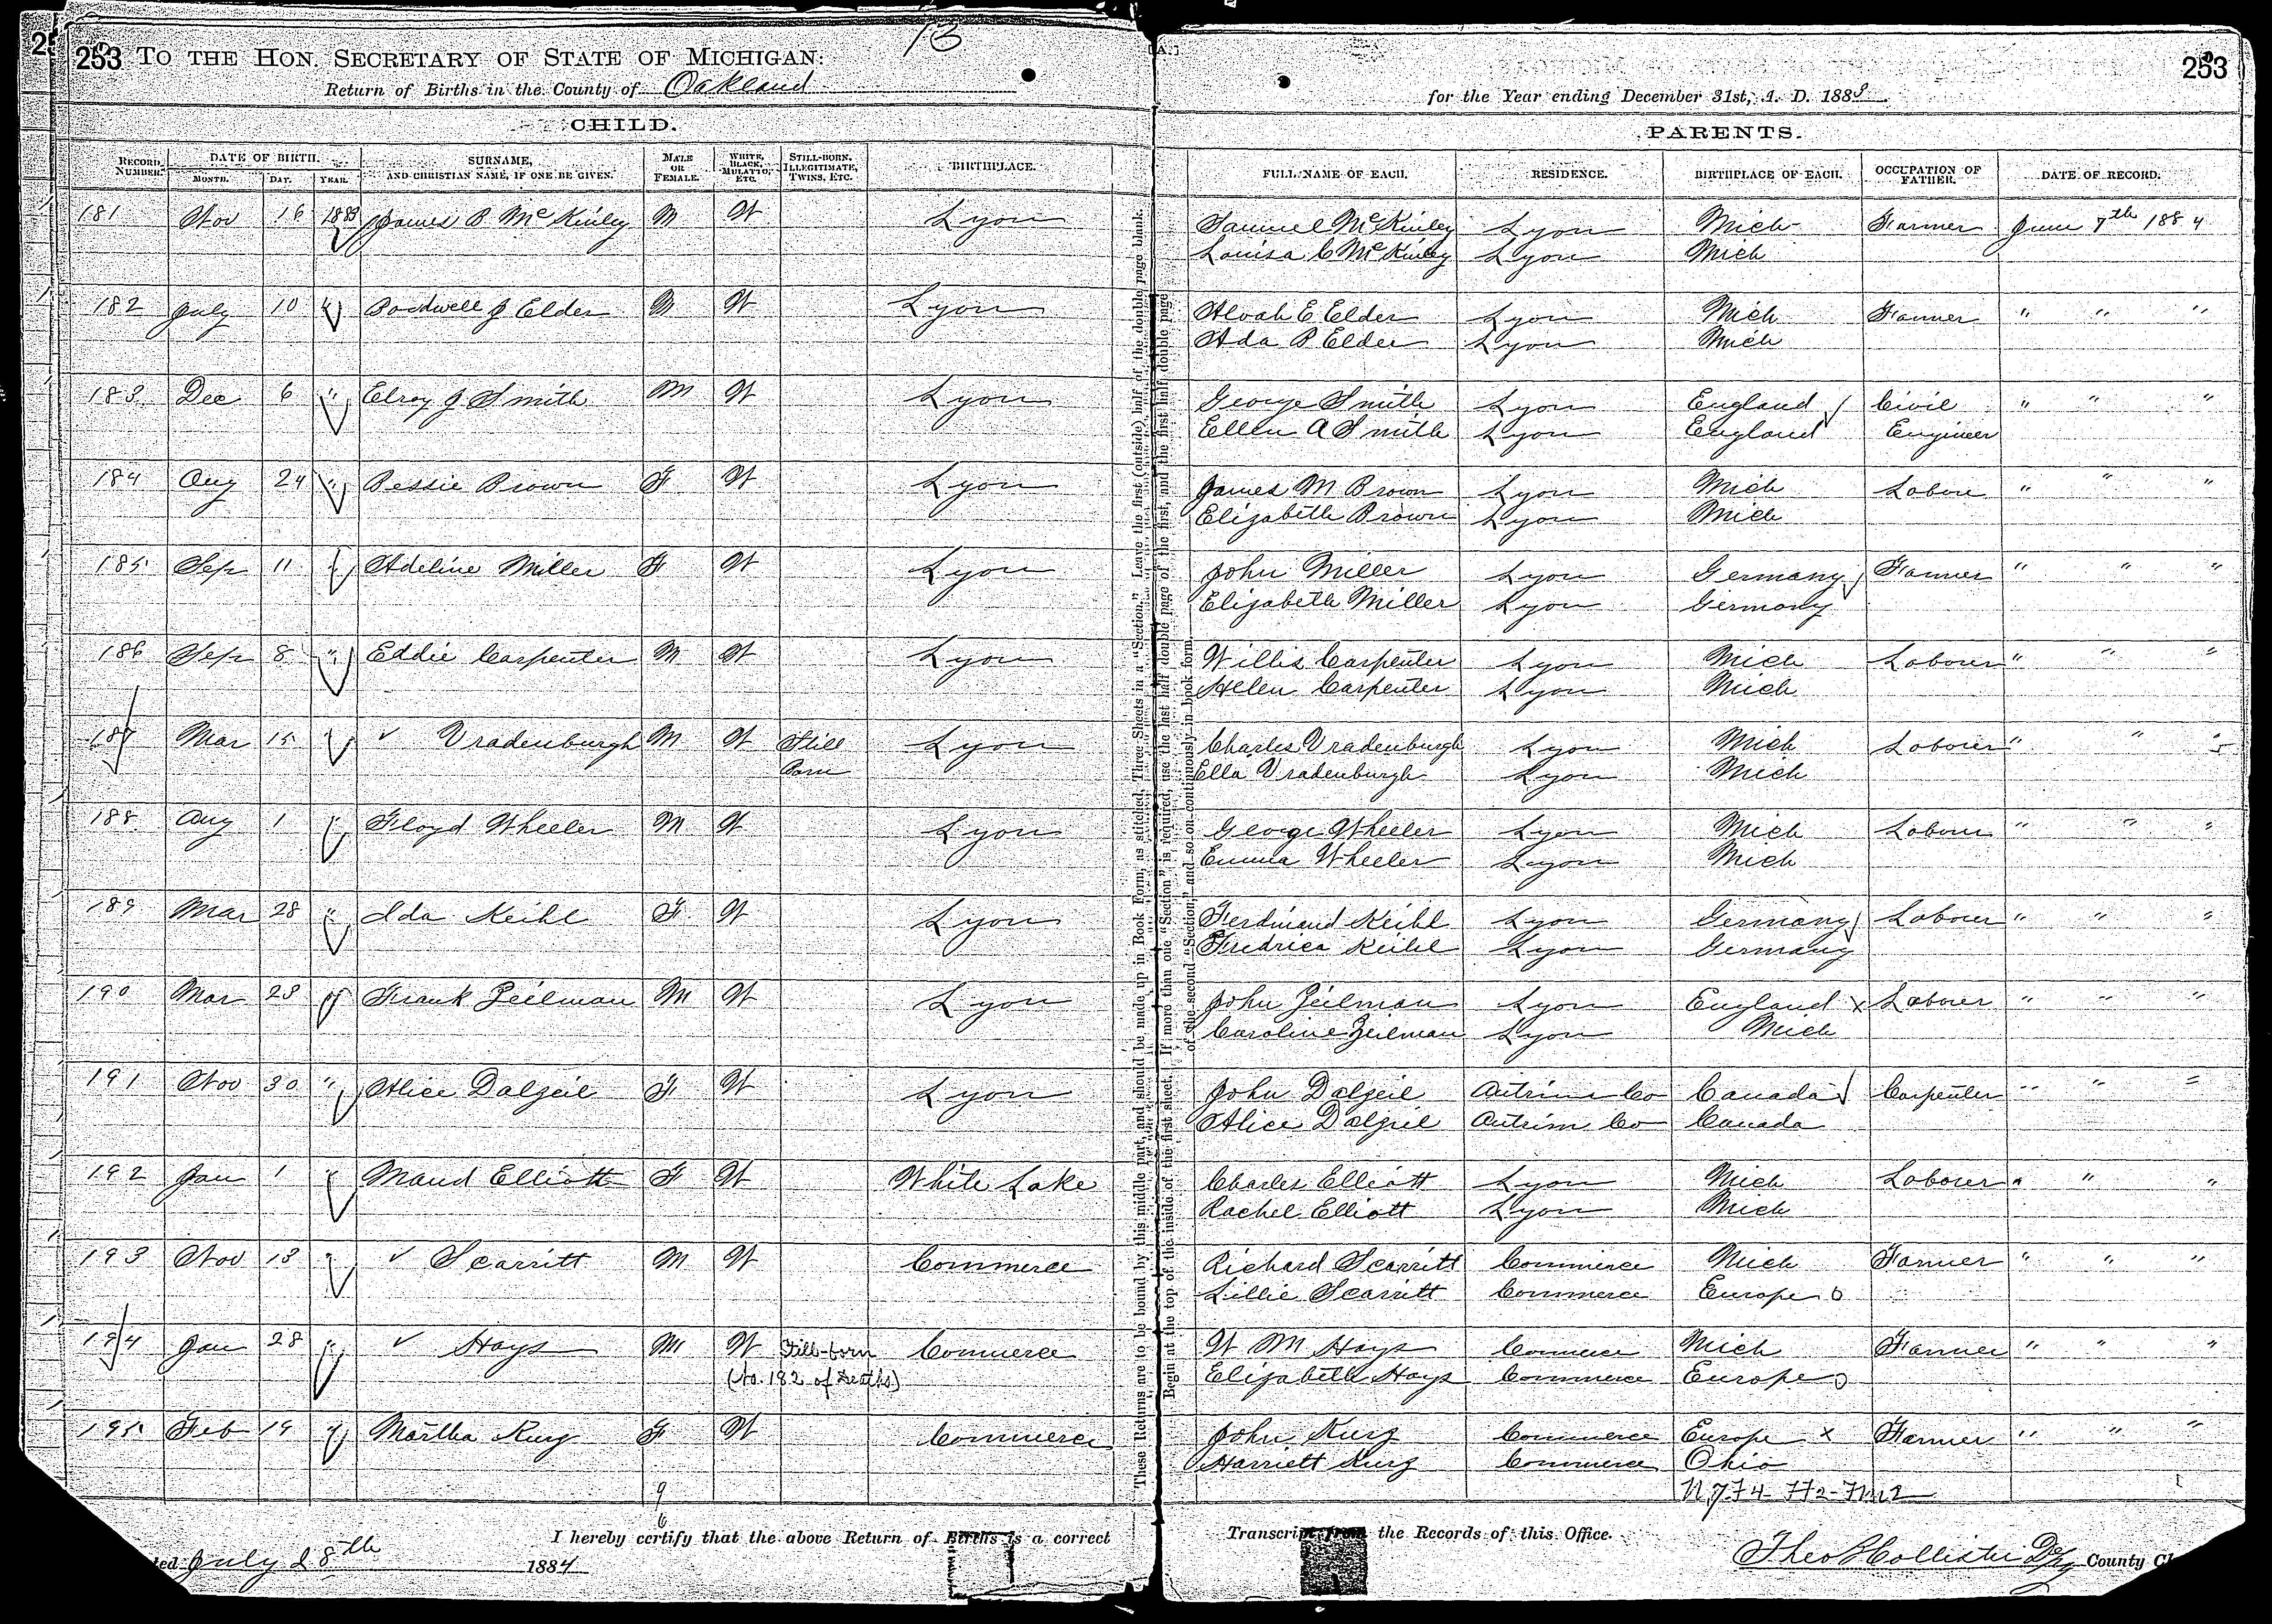 13
253 TO THE HON. SECRETARY OF STATE OF MICHIGAN:
Return of Births in the County of Oakland
CHILD.
RECORD NUMBER. DATE OF BIRTH. MONTH. DAY. YEAR. SURNAME, AND CHRISTIAN NAME, IF ONE BE GIVEN. MALE OR FEMALE. WHITE, BLACK, MULATTO, ETC. STILL-BORN, ILLEGITIMATE, TWINS, ETC. BIRTHPLACE.
181 Nov 16 1883 James B McKinley M W Lyon
182 July 10 " Bordwell J Elder M W Lyon
183 Dec 6 " Elroy J Smith M W Lyon
184 Aug 24 " Bessie Brown F W Lyon
185 Sep 11 " Adeline Miller F W Lyon
186 Sep 8 " Eddie Carpenter M W Lyon
187 Mar 15 " Vradenburgh M W Still Born Lyon
188 Aug 1 " Floyd Wheeler M W Lyon
189 Mar 28 " Ida Keihl F W Lyon
190 Mar 28 " Frank Zeilman M W Lyon
191 Nov 30 " Alice Dalzeil F W Lyon
192 Jan 1 " Maud Elliott F W White Lake
193 Nov 13 " Scarritt M W Commerce
194 Jan 28 " Hays M W Still-born Commerce
(No. 182 of Deaths)
195 Feb 19 " Martha Kurz F W Commerce
9
6
I hereby certify that the above Return of Births is a correct
July 28th 1884
These Returns are to be bound by this middle part, and should be made up in Book Form, as stitched, Three Sheets in a "Section." Leave the first (outside) half of the double page blank.
Begin at the top of the inside of the first sheet. If more than one "Section" is required, use the last half double page of the first, and the first half double page
of the second "Section," and so on continuously in book form.
[A.]
253
for the Year ending December 31st, A. D. 1883.
PARENTS.
FULL NAME OF EACH. RESIDENCE. BIRTHPLACE OF EACH. OCCUPATION OF FATHER. DATE OF RECORD.
Samuel McKinley Lyon Mich Farmer June 7th 1884
Louisa C McKinley Lyon Mich
Alvah E Elder Lyon Mich Farmer " " "
Ada B Elder Lyon Mich
George Smith Lyon England Civil " " "
Ellen A Smith Lyon England Engineer
James M Brown Lyon Mich Labore " " "
Elizabeth Brown Lyon Mich
John Miller Lyon Germany Farmer " " "
Elizabeth Miller Lyon Germany
Willis Carpenter Lyon Mich Laborer " " "
Helen Carpenter Lyon Mich
Charles Vradenburgh Lyon Mich Laborer " " "
Ella Vradenburgh Lyon Mich
George Wheeler Lyon Mich Laborer " " "
Emma Wheeler Lyon Mich
Ferdinand Keihl Lyon Germany Laborer " " "
Fredrica Keihl Lyon Germany
John Zeilman Lyon England x Laborer " " "
Caroline Zeilman Lyon Mich
John Dalzeil Antrim Co Canada Carpenter " " "
Alice Dalzeil Antrim Co Canada
Charles Elliott Lyon Mich Laborer " " "
Rachel Elliott Lyon Mich
Richard Scarritt Commerce Mich Farmer " " "
Lillie Scarritt Commerce Europe o
W M Hays Commerce Mich Farmer " " "
Elizabeth Hays Commerce Europe o
John Kurz Commerce Europe x Farmer " " "
Harriett Kurz Commerce Ohio
Transcript from the Records of this Office.
Theo B Collister Dpy County